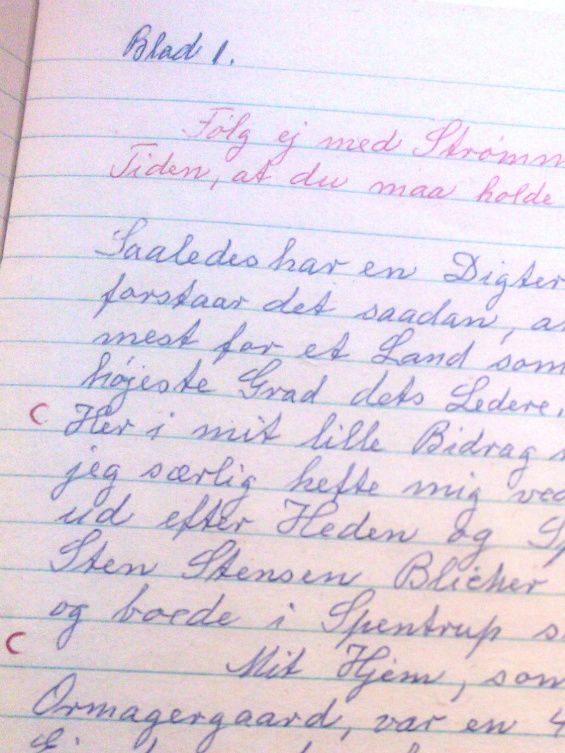 Blad 1.
Følg ej med Strømn
Tiden, at du maa holde
Saaledes har en Digter
forstaar det saadan, a
mest for et Land som
højeste Grad dets Ledere.
Her i mit lille Bidrag s
jeg særlig hefte mig ved
ud efter Heden og Sp
Sten Stensen Blicher
og boede i Spentrup s
Mit Hjem, som
Ormagergaard, var en 4